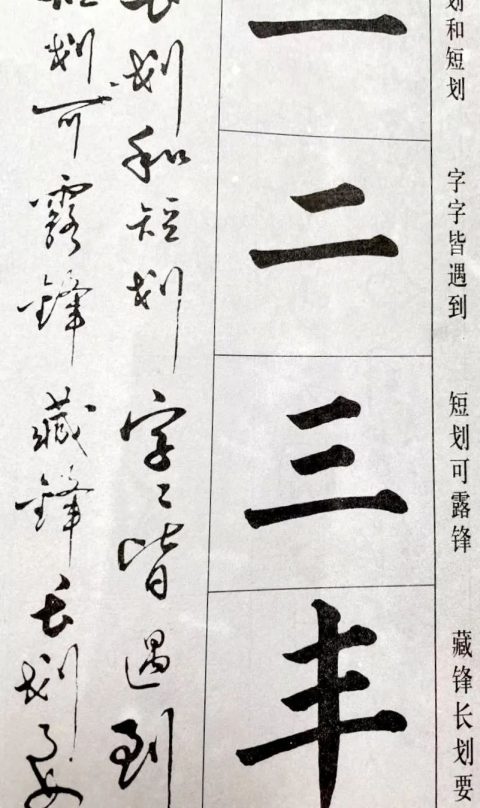 划和短划
字字皆遇到
短划可露锋
藏锋长划要
一
二
三
丰
长划和短划字々皆遇到
短划可露锋藏锋长划要